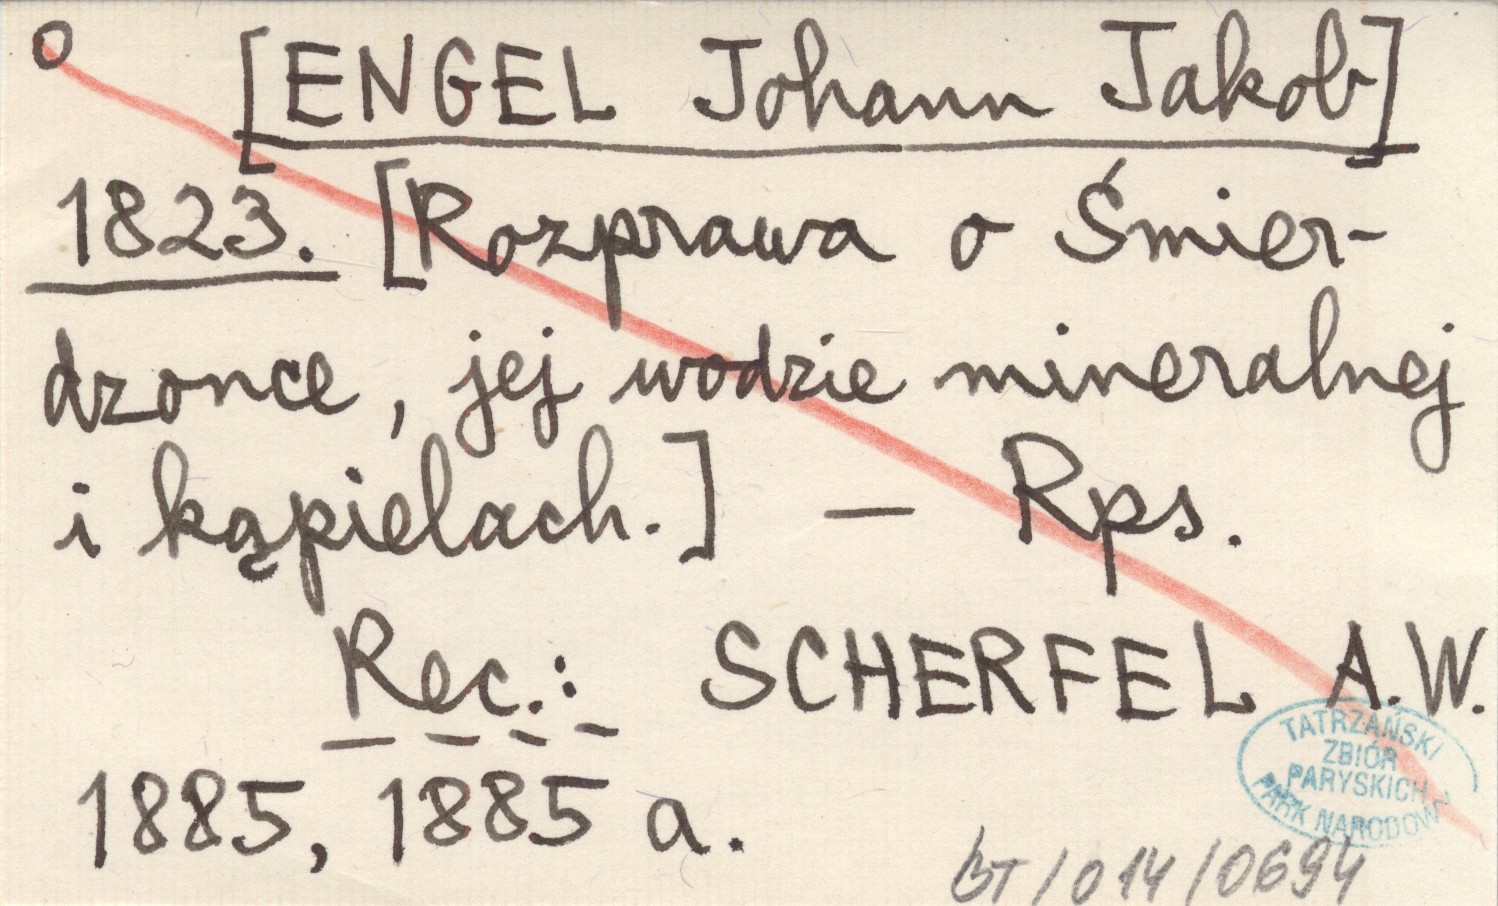 [ENGEL Johann Jakob]
1823. [Rozprawa o Śmier-
dzonce, jej wodzie mineralnej
i kąpielach.] — Rps.
Rec.: SCHERFEL A.W.
1885, 1885 a.
TATRZAŃSKI
ZBIÓR
PARYSKICH
PARK NARODOWY
BT/014/0694